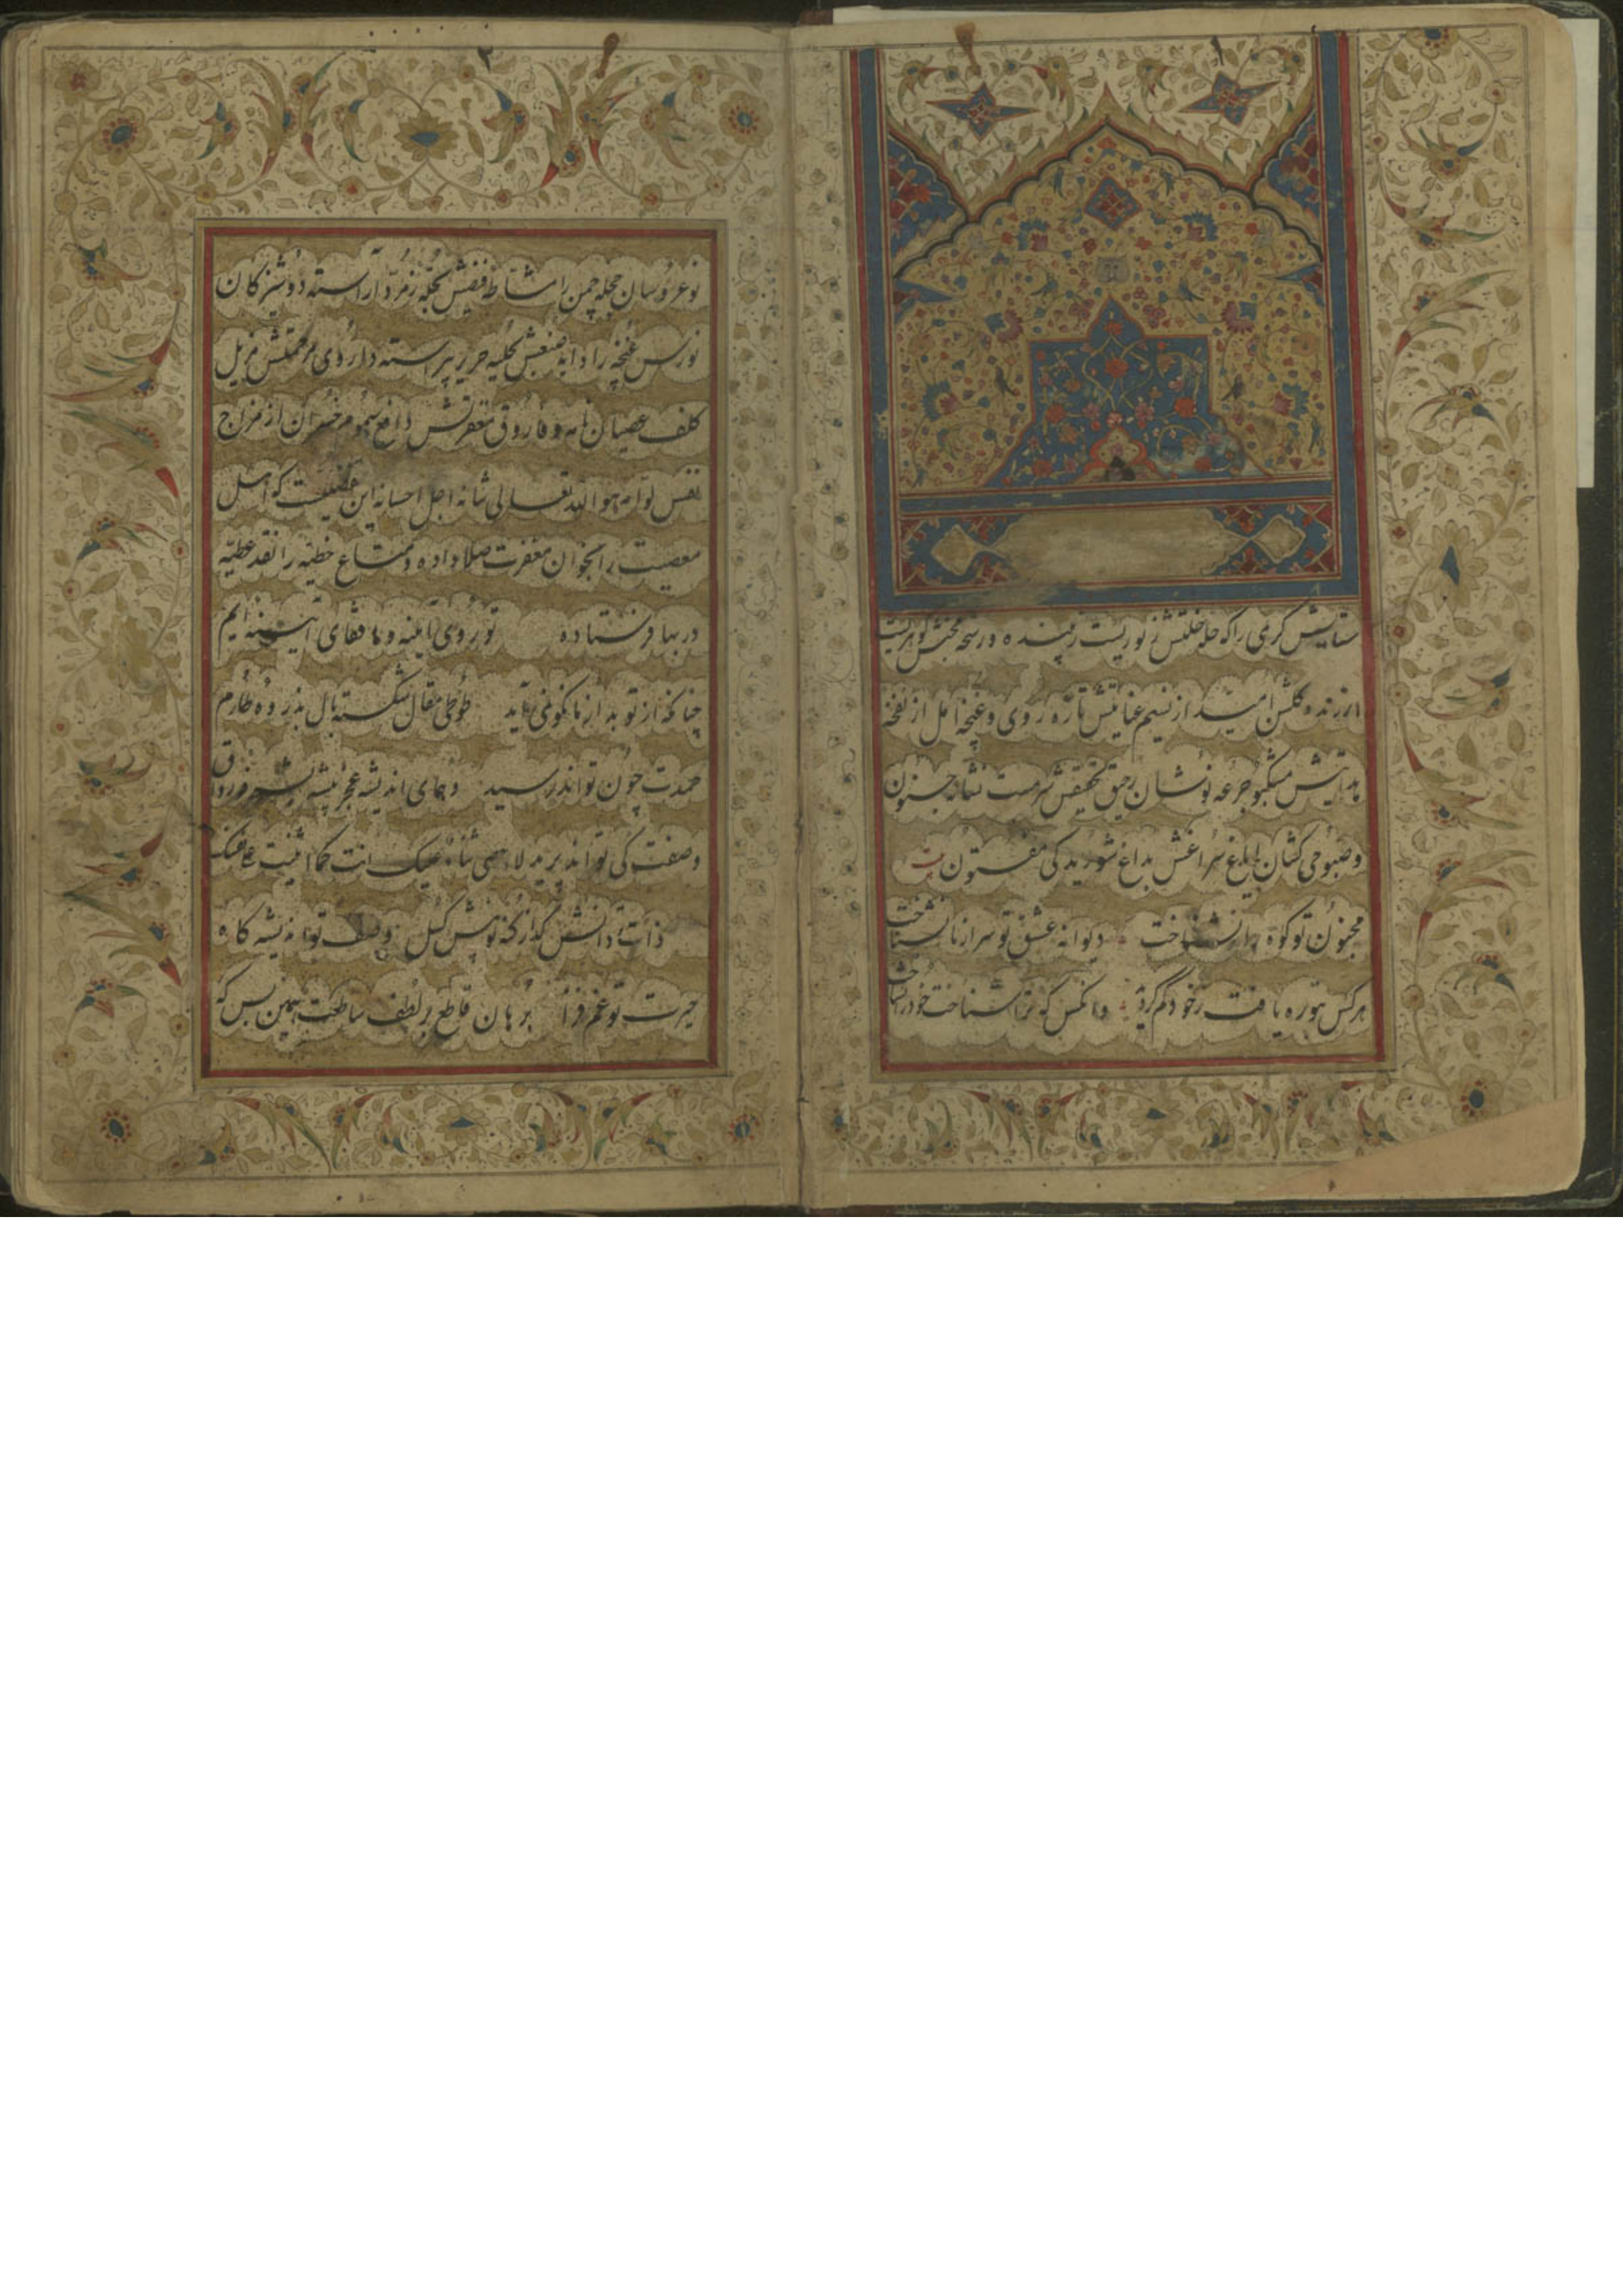 ۱
ستایش گری را که حله خلتش ز نوریست زیبنده و رشحه محبتش گوهریست
ارزنده گلشن امید از نسیم عنایتش تازه روی و غنچه امل از نفخه
هدایتش مشکبو جرعه نوشان رحیق تحقیقش سرمست نشانه جنون
و صبوحی کشان ایاغ سراغش بداغ شوریدگی مفتون بیت
مجنون تو کوه را از نشناخت دیوانه عشق تو سر از پا نشناخت
هر کس بتو ره یافت ز خود گم گردید وانکس که ترا شناخت خود را نشناخت
۲
نوعروسان حجله چمن را مشاطه فیضش بحله زمرد آراسته دوشیزکان
نورس غنچه را دایه صنعش بحلیه حریر پیراسته داروی مرحمتش مزیل
کلف عصیان نامه و فاروق مغفرتش دافع سموم خسران از مزاج
نفس لوامه هو الله تعالی شانه اجل احسانه این که اهل
معصیت را بخوان مغفرت صلا داده و متاع خطیه را نقد عطیه
در بها فرستاده تو روی آینه و ما قفای آیینه ایم
چنانکه از تو بد از ما نکوئی ناید طوطی مقال شکسته بال بذروه طارم
حمدت چون تواند رسید و همای اندیشه عجز پیشه
وصفت کی تواند پرید لا احصی ثناء علیک انت کما اثنیت علی نفسک
ذات تو دانش گداز کنه تو بینش گسل وصف تو اندیشه کاه
حیرت تو غم فزا برهان قاطع بر لطف ساطعت همین بس که